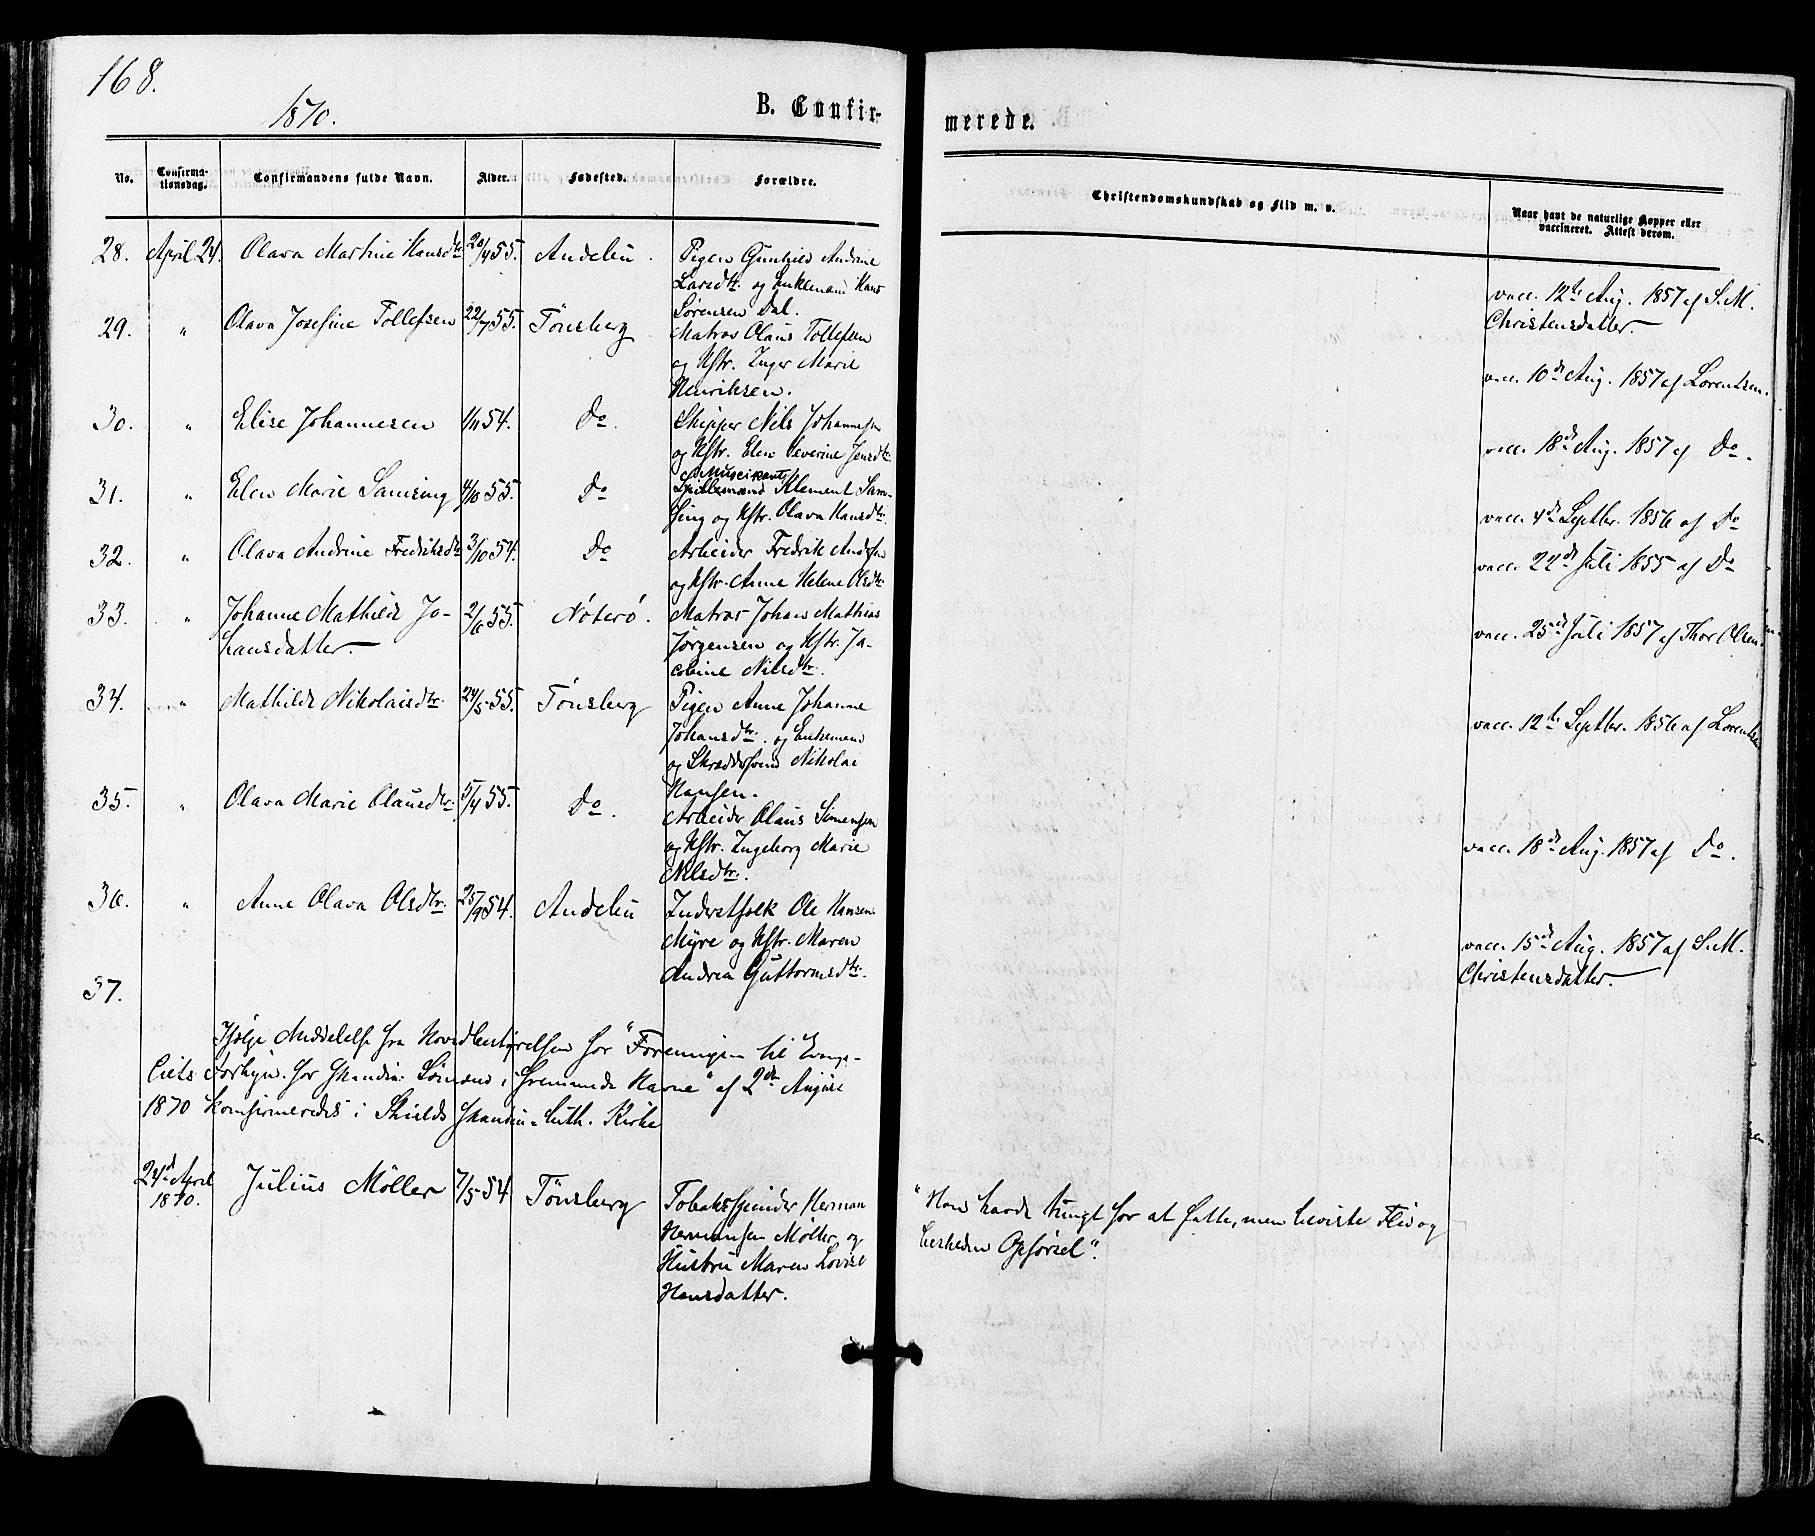 168.
1870.
B. Confir-
merede.
No.
Confirma-
tionsdag.
Confirmandens fulde Navn.
Alder.
Fødested.
Forældre.
Christendomskundskab og Flid m. v.
Naar havt de naturlige Kopper eller
vaccineret. Attest derom.
28. April 24. Olava Martine Hansdtr. 20/4 55. Andebu. Pigen Gunhild Andrine
Larsdtr. og Enkemand Hans
Sørensen Dal.
vacc. 12te Aug. 1857 af S. M.
Christensdatter.
29. " Olava Josefine Tollefsen 22/7 55. Tønsberg Matros Olaus Tollefsen
og Hstr. Inger Marie
Henriksen.
vacc. 10de Aug. 1857 af Lorentzen.
30. " Elise Johannesen 1/11 54. Do. Skipper Nils Johannesen
og Hstr. Elen Severine Jensdtr.
vacc. 18de Aug. 1857 af Do.
31. " Elen Marie Samsing 4/10 55. Do Musicant
Spillemand Klement Sam-
sing og Hstr. Olava Hansdtr.
vacc. 4de Septbr. 1856 af Do
32. " Olava Andrine Fredriksdtr 3/10 54. Do Arbeider Fredrik Andersen
og Hstr. Anne Helene Olsdtr.
vacc. 22de Juli 1855 af Do
33. " Johanne Mathilde Jo-
hansdatter. 2/6 55. Nøterø. Matros Johan Mathias
Jørgensen og Hstr. Ja-
cobine Nilsdtr.
vacc. 25de Juli 1857 af Thor Olsen
34. " Mathilde Nikolaisdtr. 24/5 55. Tønsberg Pigen Anne Johanne
Johansdtr. og Enkemand
og Skræddersvend Nikolai
Hansen.
vacc. 12te Septbr. 1856 af Lorentzen
35. " Olava Marie Olausdtr. 5/4 55. Do. Arbeider Olaus Simensen
og Hstr. Ingeborg Marie
Nilsdtr.
vacc. 18de Aug. 1857 af Do.
36. " Anne Olava Olsdtr. 25/9 54. Andebu Inderstfolk Ole Hansen
Myre og Hstr. Maren
Andrea Guttormsdtr.
vacc. 15de Aug. 1857 af S. M.
Christensdatter.
37.
Ifølge Meddelelse fra Hovedbestyrelsen for "Foreningen til Evange-
liets Forkyn. for skandin. Sømænd i fremmede Havne" af 2den August
1870 konfirmeredes i Shields skandin. luth. Kirke
24de April
1870. Julius Møller 7/5 54 Tønsberg Tobaksspinder Herman
Hermansen Møller og
Hustru Maren Lovise
Hansdatter.
"Han havde tungt for at fatte, men beviste Flid og
beskeden Opførsel".